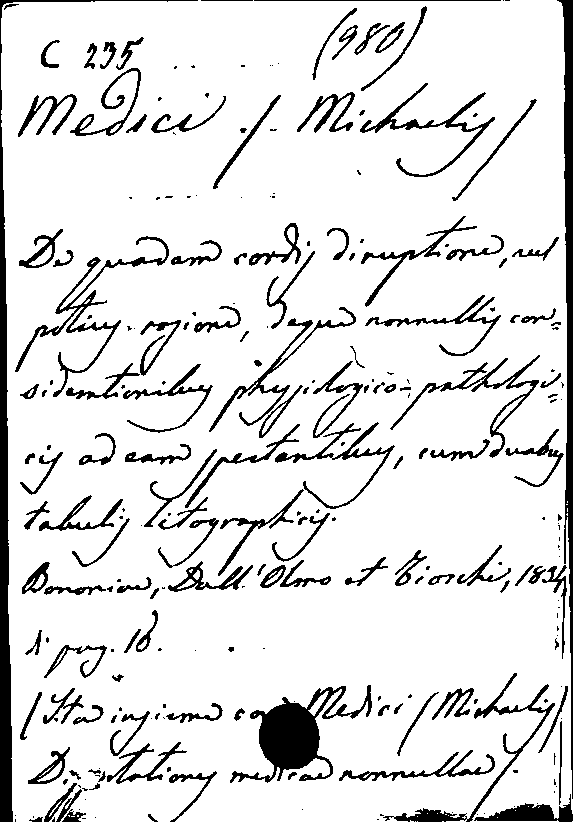 C 235 (980)
Medici / Michaelis /
De quadam cordis diruptione, vel
potius rogione, deque nonnullis con=
siderationibus physiologico-pathologi=
cis ad eam spectantibus, cum duabus
tabulis litographicis.
Bononiae, Dall'Olmo et Tiocchi, 1834,
di pag. 18.
(Sta insieme con Medici (Michaelis)
medicae nonnullae).